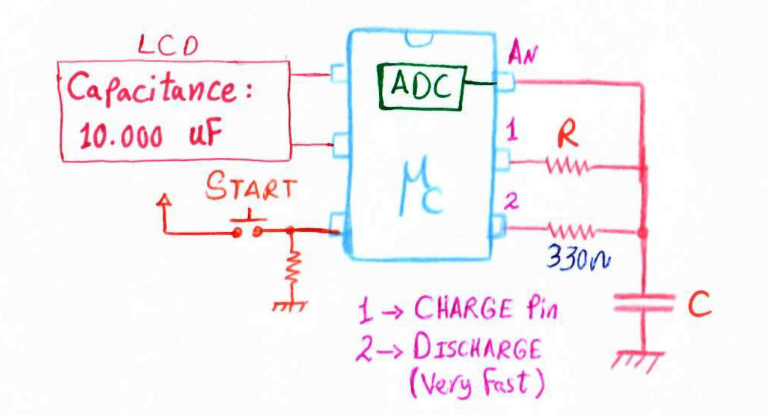 LCD
Capacitance:
10.000 uF
START
ADC
μC
AN
1
R
2
330Ω
C
1 → CHARGE Pin
2 → DISCHARGE
(Very Fast)